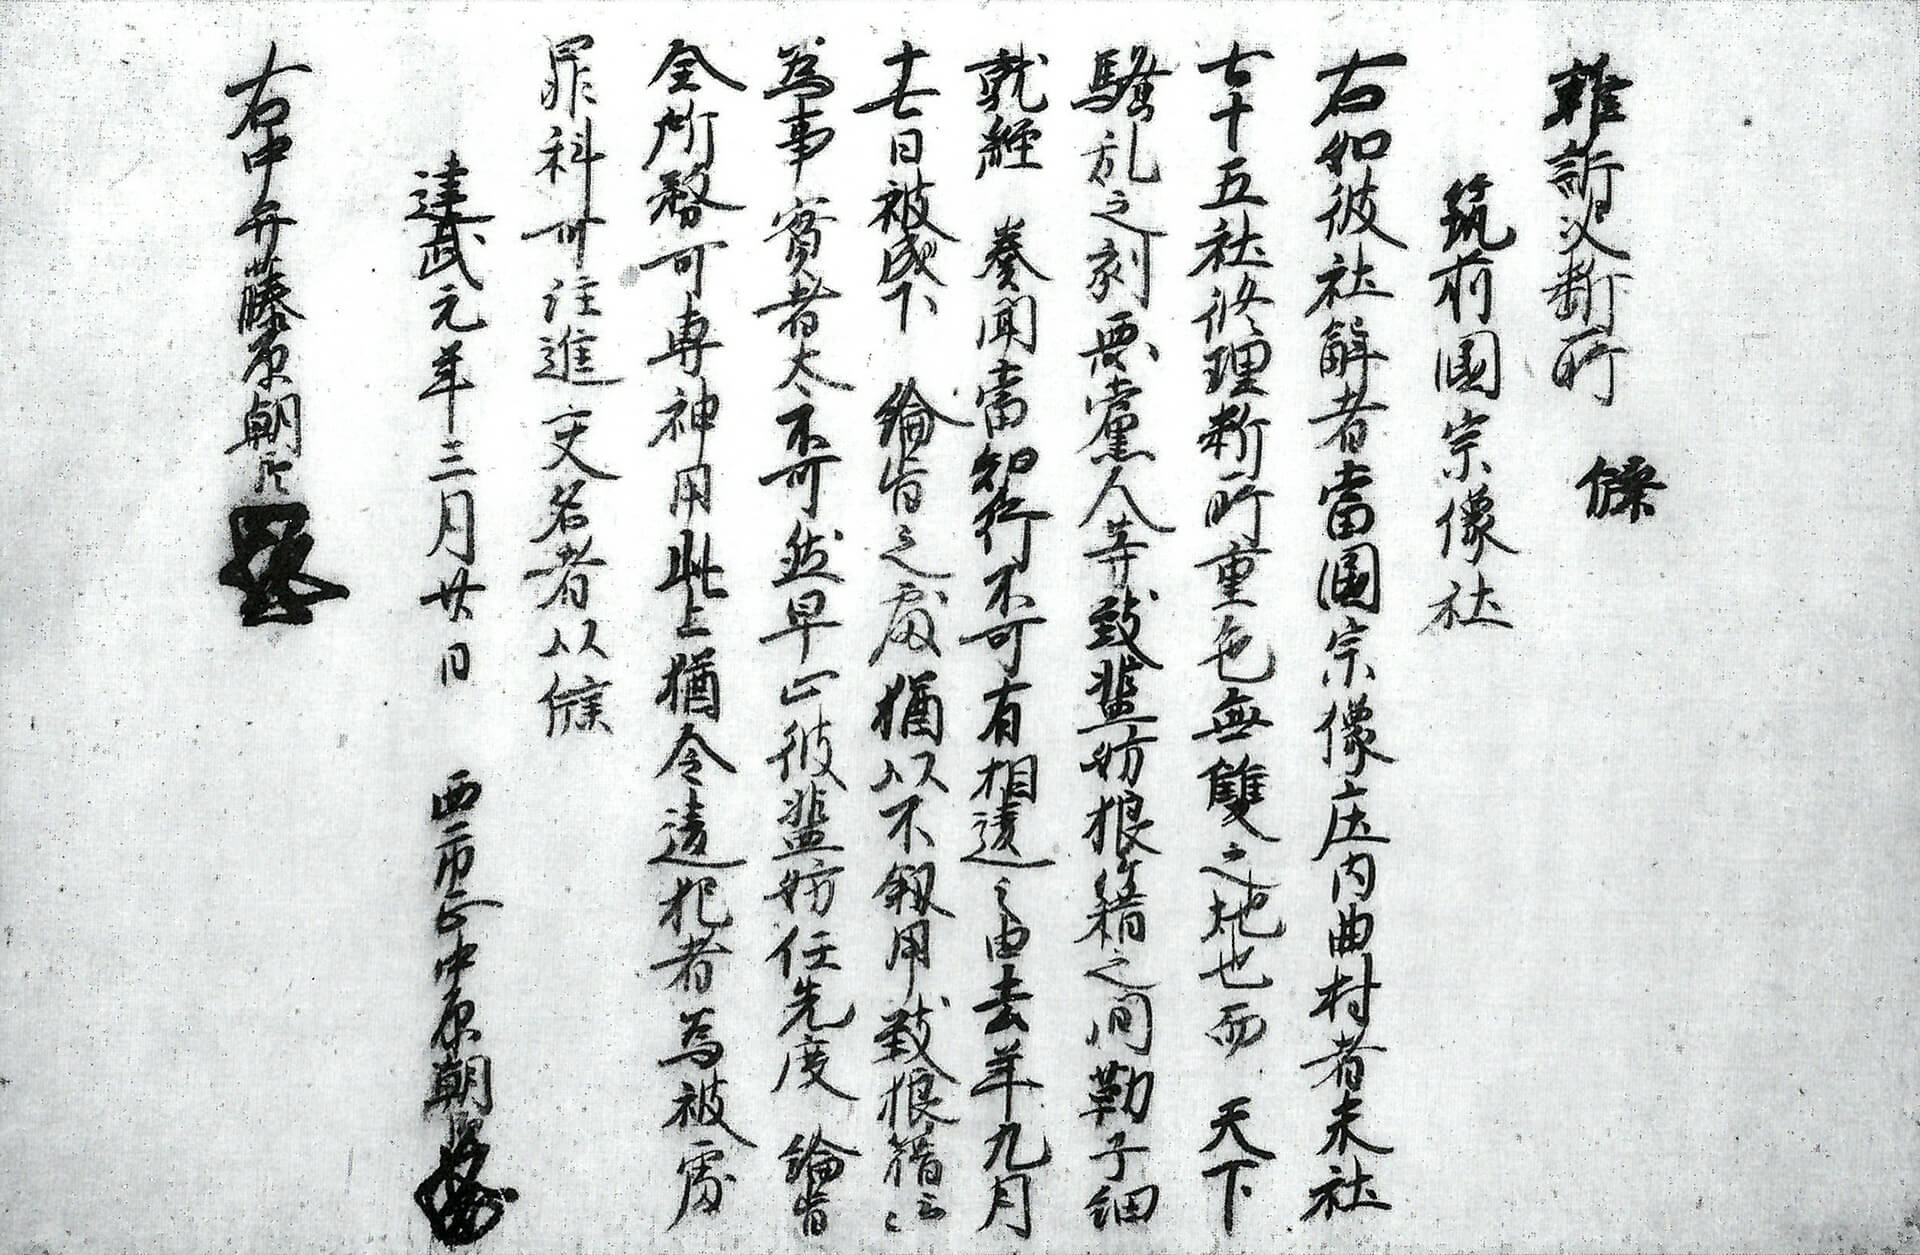 雑訴决断所　牒
筑前國宗像社
右如彼社解者當國宗像庄内曲村者末社
七十五社修理料所重色無雙之地也而　天下
騒乱之刻悪黨人等致濫妨狼籍之間勒子細
就經　奏聞當知行不可有相違之由去年九月
十七日被成下　綸旨之處猶以不叙用致狼籍云々
為事實者太不可然早止彼濫妨任先度　綸旨
全所務可専神用此上猶令違犯者為被處
罪科可注進交名者以牒
建武元年三月廿日　　西市正中原朝臣
右中弁藤原朝臣